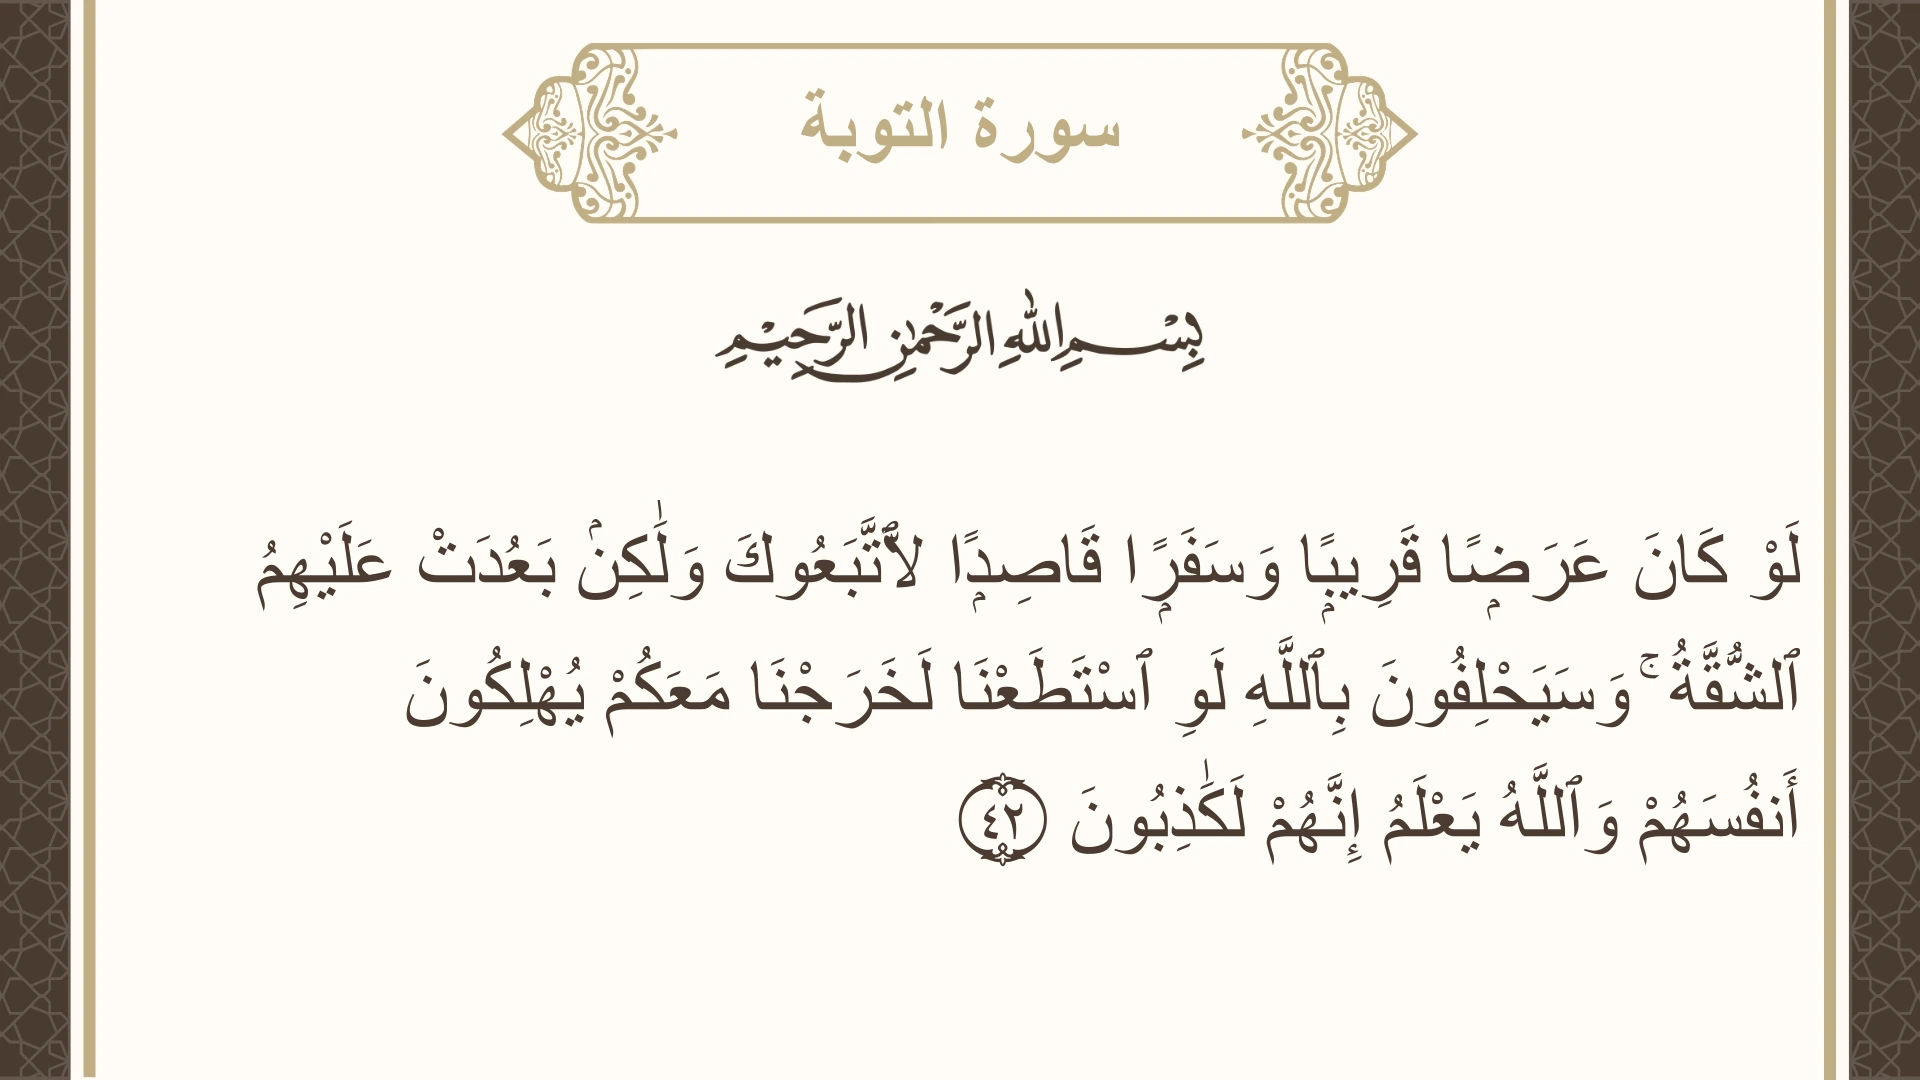 سورة التوبة
بِسْمِ اللهِ الرَّحْمٰنِ الرَّحِيْمِ
لَوْ كَانَ عَرَضًۭا قَرِيبًۭا وَسَفَرًۭا قَاصِدًۭا لَّٱتَّبَعُوكَ وَلَٰكِنۢ بَعُدَتْ عَلَيْهِمُ
ٱلشُّقَّةُ ۚ وَسَيَحْلِفُونَ بِٱللَّهِ لَوِ ٱسْتَطَعْنَا لَخَرَجْنَا مَعَكُمْ يُهْلِكُونَ
أَنفُسَهُمْ وَٱللَّهُ يَعْلَمُ إِنَّهُمْ لَكَٰذِبُونَ ٤٢